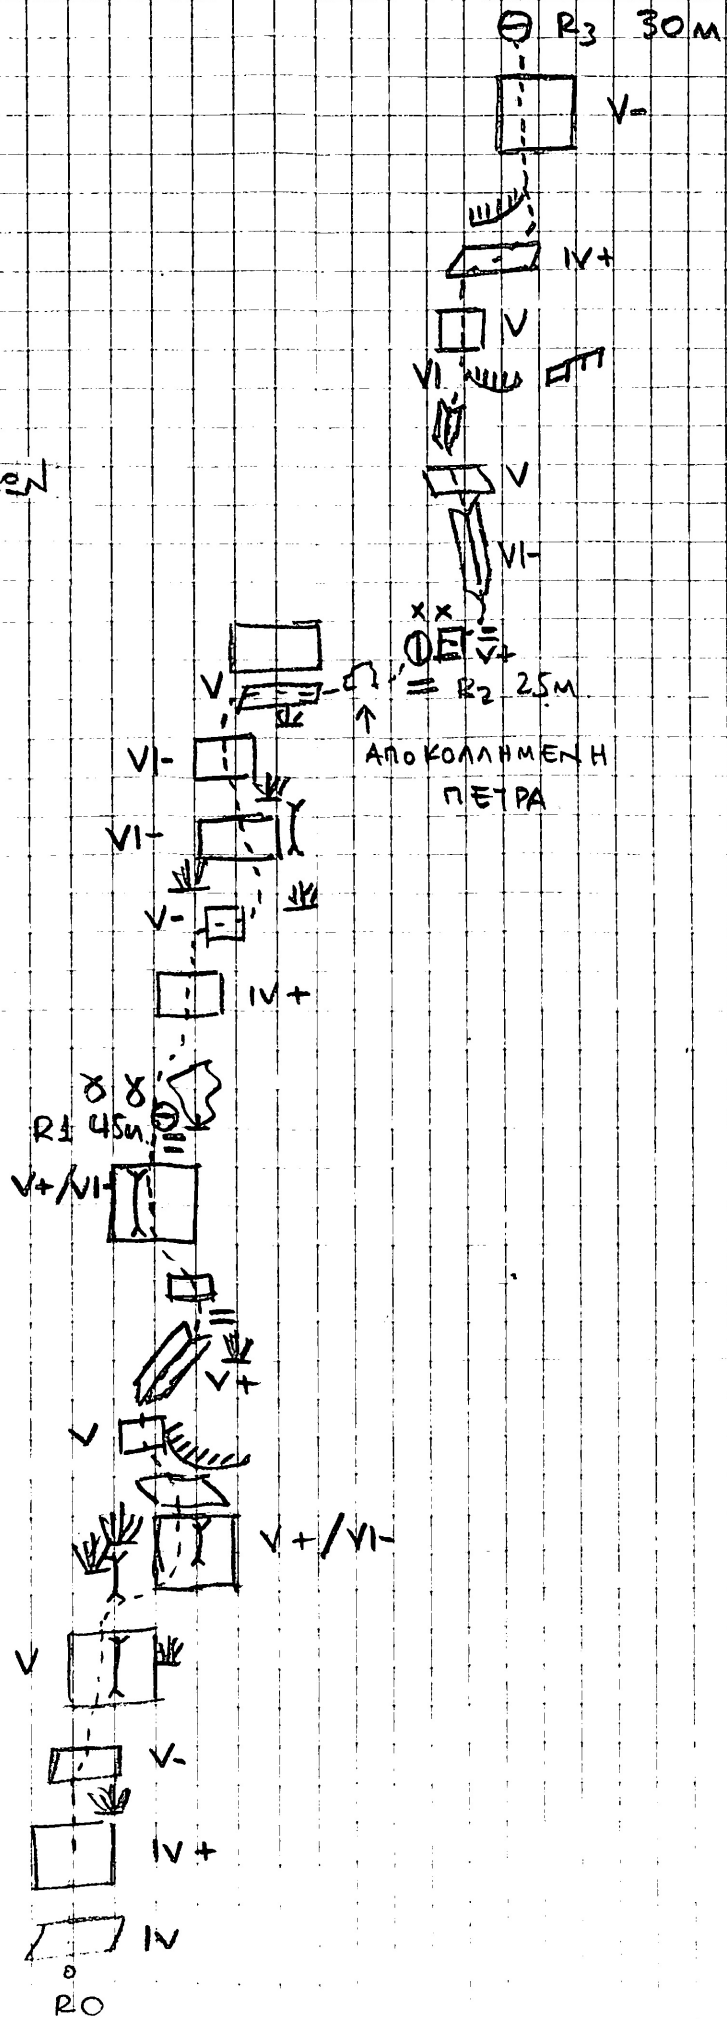 R3 30м
V-
IV+
V
VI
V
VI-
V+
R2 25м
V
ΑΠΟΚΟΛΛΗΜΕΝΗ
ΠΕΤΡΑ
VI-
VI-
V-
IV+
R1 45м
V+/VI-
V+
V
V+/VI-
V
V-
IV+
IV
R0